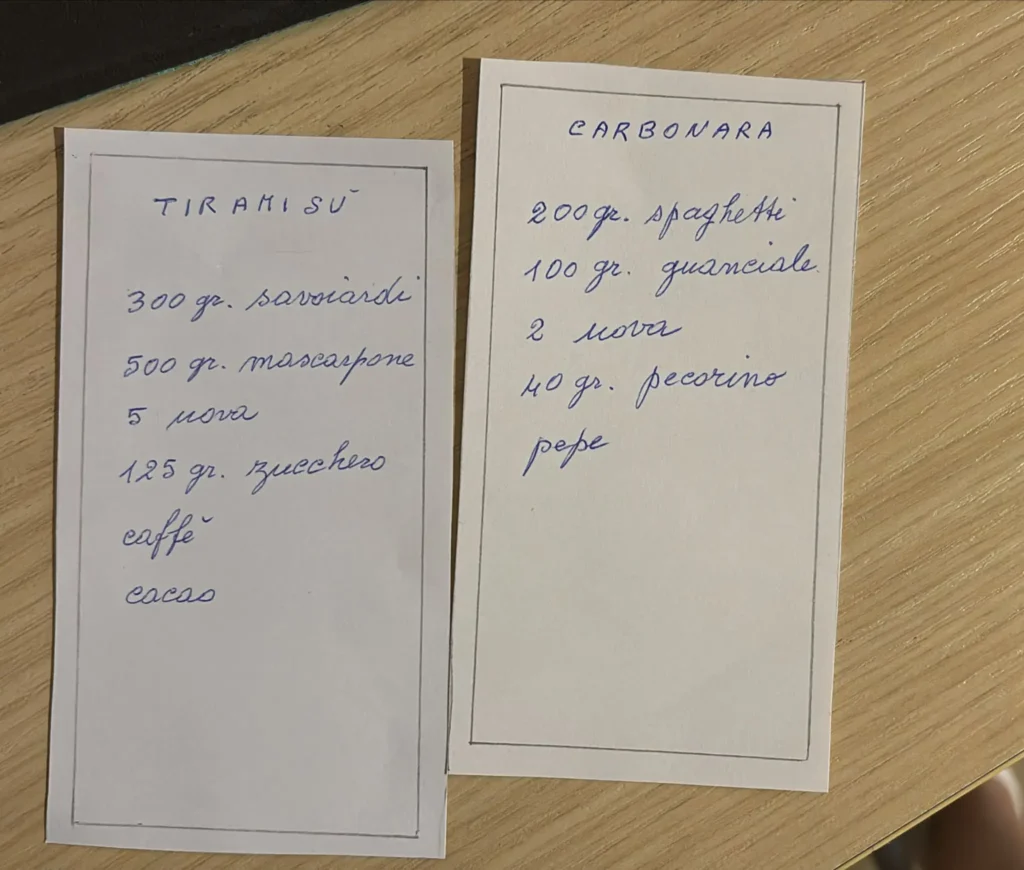 TIRAMISÙ
300 gr. savoiardi
500 gr. mascarpone
5 uova
125 gr. zucchero
caffè
cacao
CARBONARA
200 gr. spaghetti
100 gr. guanciale
2 uova
40 gr. pecorino
pepe